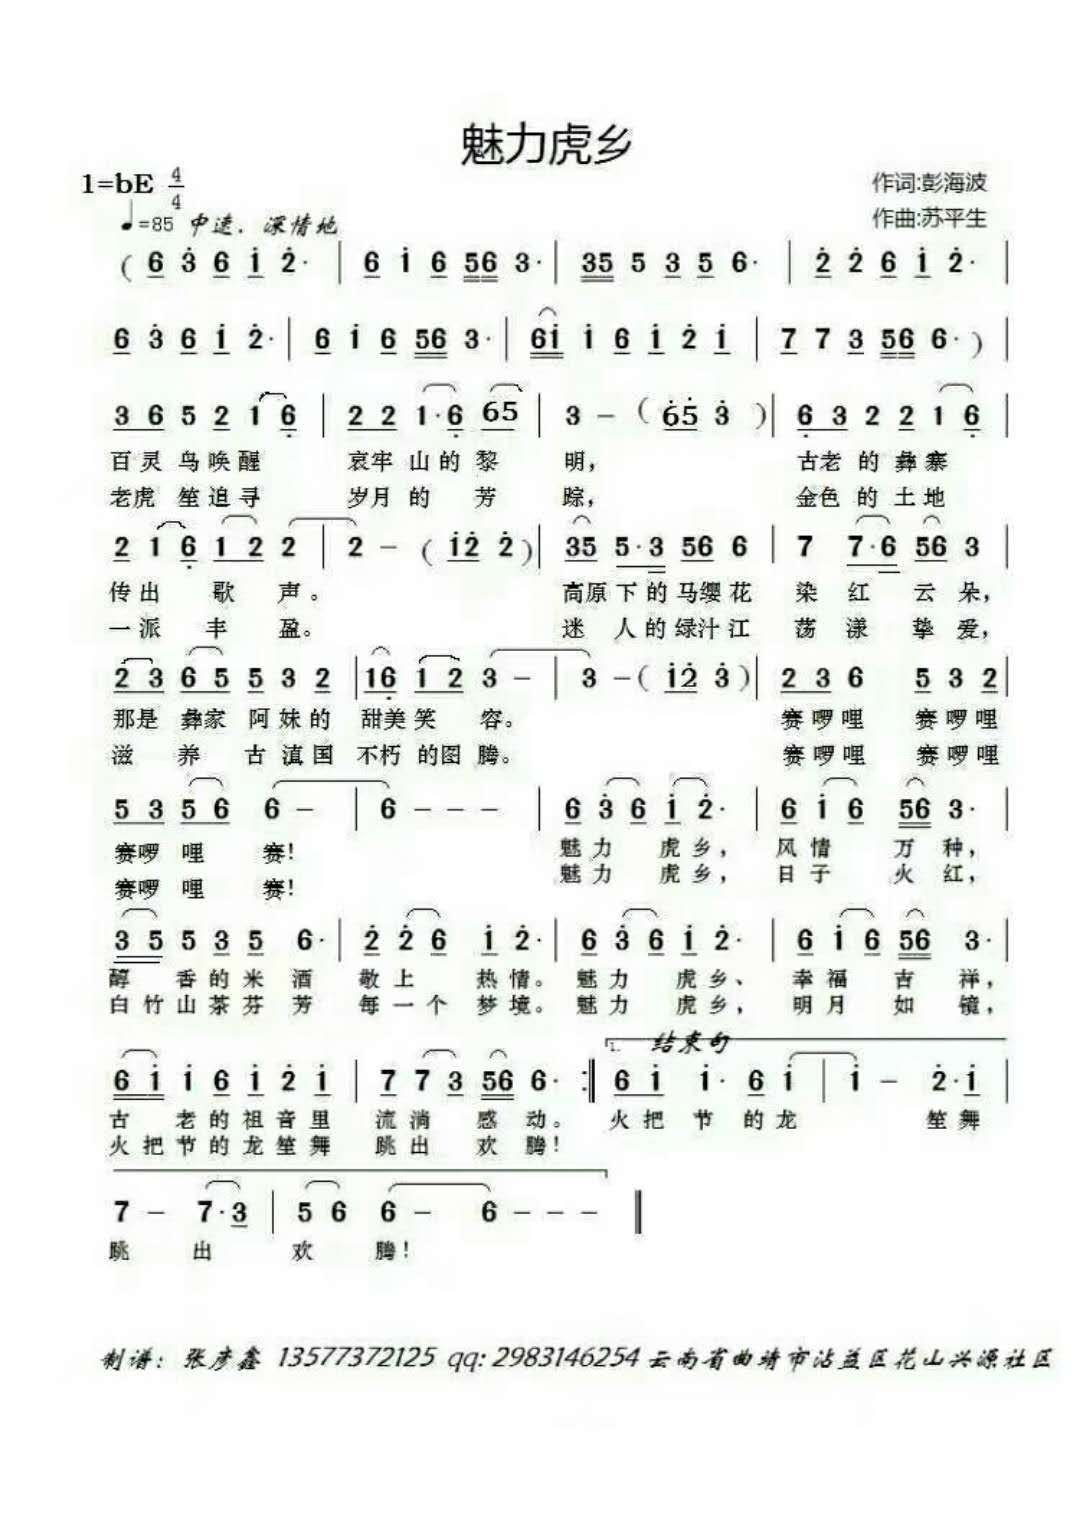 魅力虎乡
1=bE 4/4
作词:彭海波
♩=85 中速、深情地
作曲:苏平生
( 6 3̇ 6 i 2̇· | 6 i 6 56 3· | 35 5 3 5 6· | 2̇ 2̇ 6 i 2̇· |
6 3̇ 6 i 2̇· | 6 i 6 56 3· | 6i i 6 i 2̇ i | 7 7 3 56 6· ) |
3 6 5 2 1 6̣ | 2 2 1·6̣ 65 | 3 - ( 6̇5̇ 3̇ ) | 6̣ 3 2 2 1 6̣ |
百灵鸟唤醒 哀牢山的黎 明, 古老的彝寨
老虎笙追寻 岁月的芳 踪, 金色的土地
2 1 6̣ 1 2 2 | 2 - ( i2̇ 2̇ ) | 35 5·3 56 6 | 7 7·6 56 3 |
传出 歌 声。 高原下的马缨花 染红云朵,
一派 丰 盈。 迷人的绿汁江 荡漾挚爱,
2 3 6 5 5 3 2 | 16̣ 1 2 3 - | 3 - ( i2̇ 3̇ ) | 2 3 6 5 3 2 |
那是彝家阿妹的 甜美笑 容。 赛啰哩 赛啰哩
滋养古滇国 不朽的图腾。 赛啰哩 赛啰哩
5 3 5 6 6 - | 6 - - - | 6 3̇ 6 i 2̇· | 6 i 6 56 3· |
赛啰哩 赛! 魅力 虎乡, 风情 万种,
赛啰哩 赛! 魅力 虎乡, 日子 火红,
3 5 5 3 5 6· | 2̇ 2̇ 6 i 2̇· | 6 3̇ 6 i 2̇· | 6 i 6 56 3· |
醇香的米酒 敬上 热情。魅力 虎乡、 幸福 吉祥,
白竹山茶芬芳 每一个 梦境。魅力 虎乡, 明月 如镜,
1. 结束句
6 i i 6 i 2̇ i | 7 7 3 56 6· :‖ 6 i i· 6 i | i - 2̇·i |
古老的祖音里 流淌 感动。 火把节的龙 笙舞
火把节的龙笙舞 跳出 欢腾!
7 - 7·3 | 5 6 6 - 6 - - - ‖
跳 出 欢 腾!
制谱: 张彦鑫 13577372125 qq: 2983146254 云南省曲靖市沾益区花山兴源社区